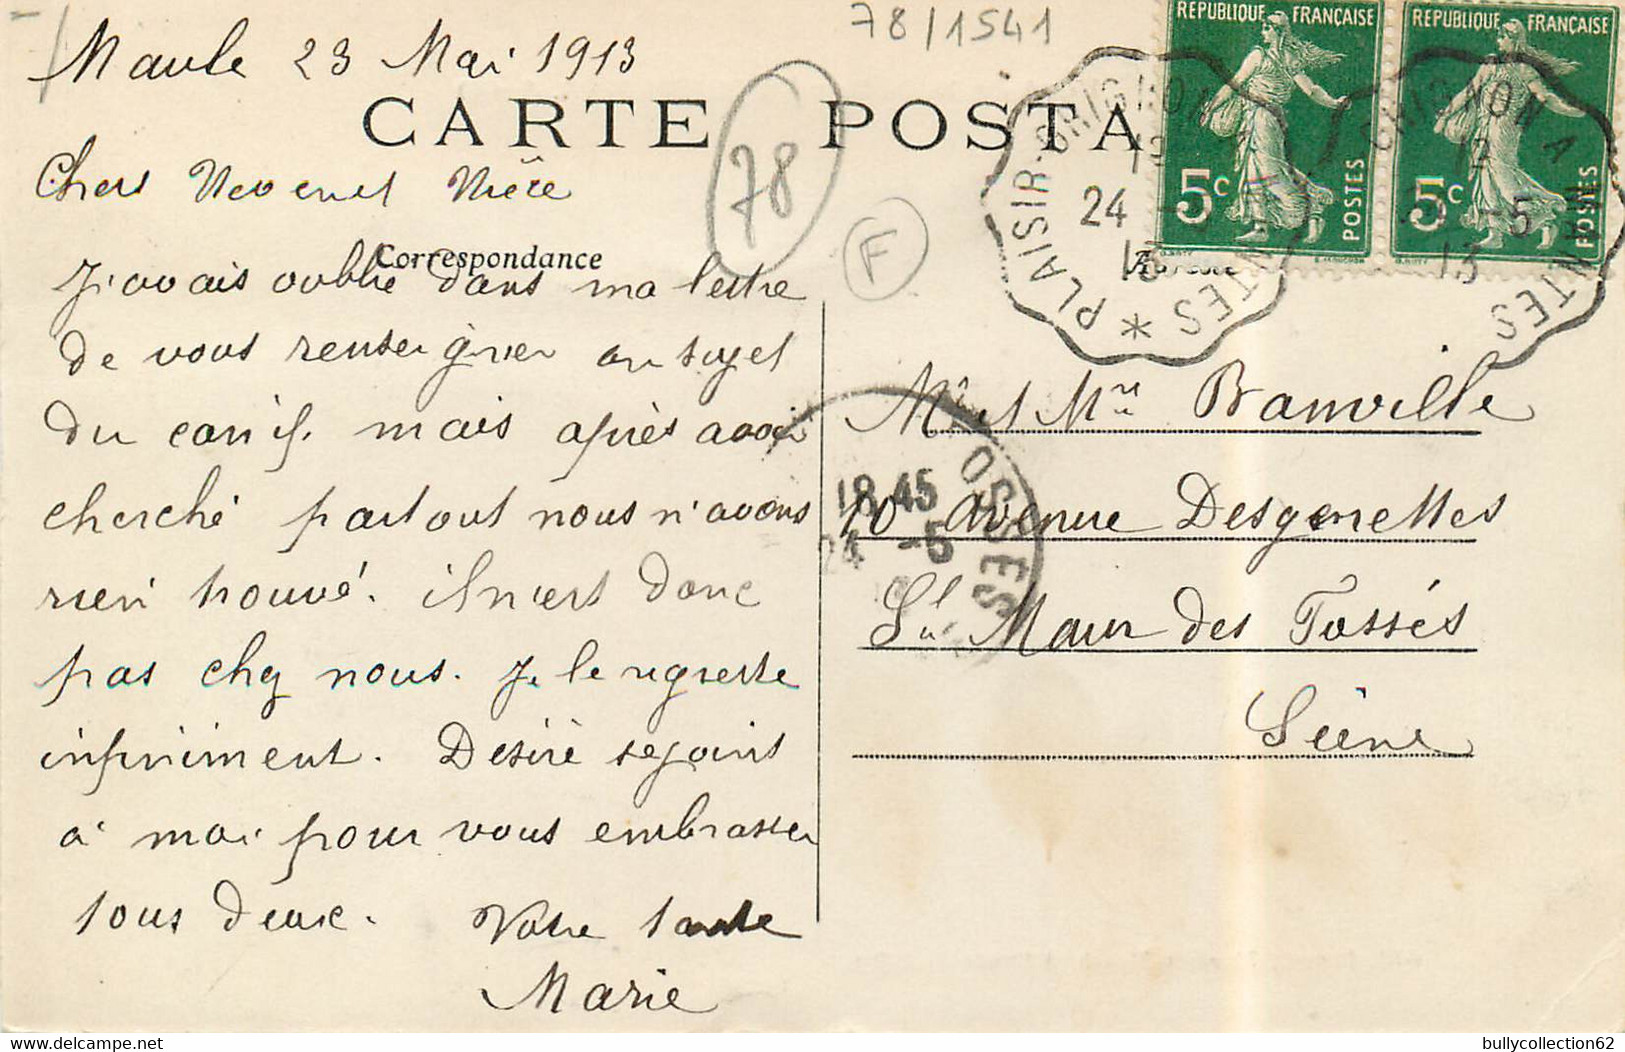 78/1541
Maule 23 Mai 1913
CARTE POSTA
78
F
Chers Neveu et Nièce
Correspondance
J'avais oublié dans ma lettre
de vous renseigner au sujet
du canif. mais après avoir
cherché partout nous n'avons
rien trouvé. il n'est donc
pas chez nous. Je le regrette
infiniment. Désiré se joint
à moi pour vous embrasser
tous deux. Votre tante
Marie
RÉPUBLIQUE FRANÇAISE
5c POSTES
RÉPUBLIQUE FRANÇAISE
5c POSTES
PLAISIR-GRIGNON A MANTES *
24
13
GRIGNON A MANTES
12
-5
13
18 45
24 -5
FOSSÉS
Mr et Mme Banville
10 Avenue Desgenettes
St Maur des Fossés
Seine
bullycollection62